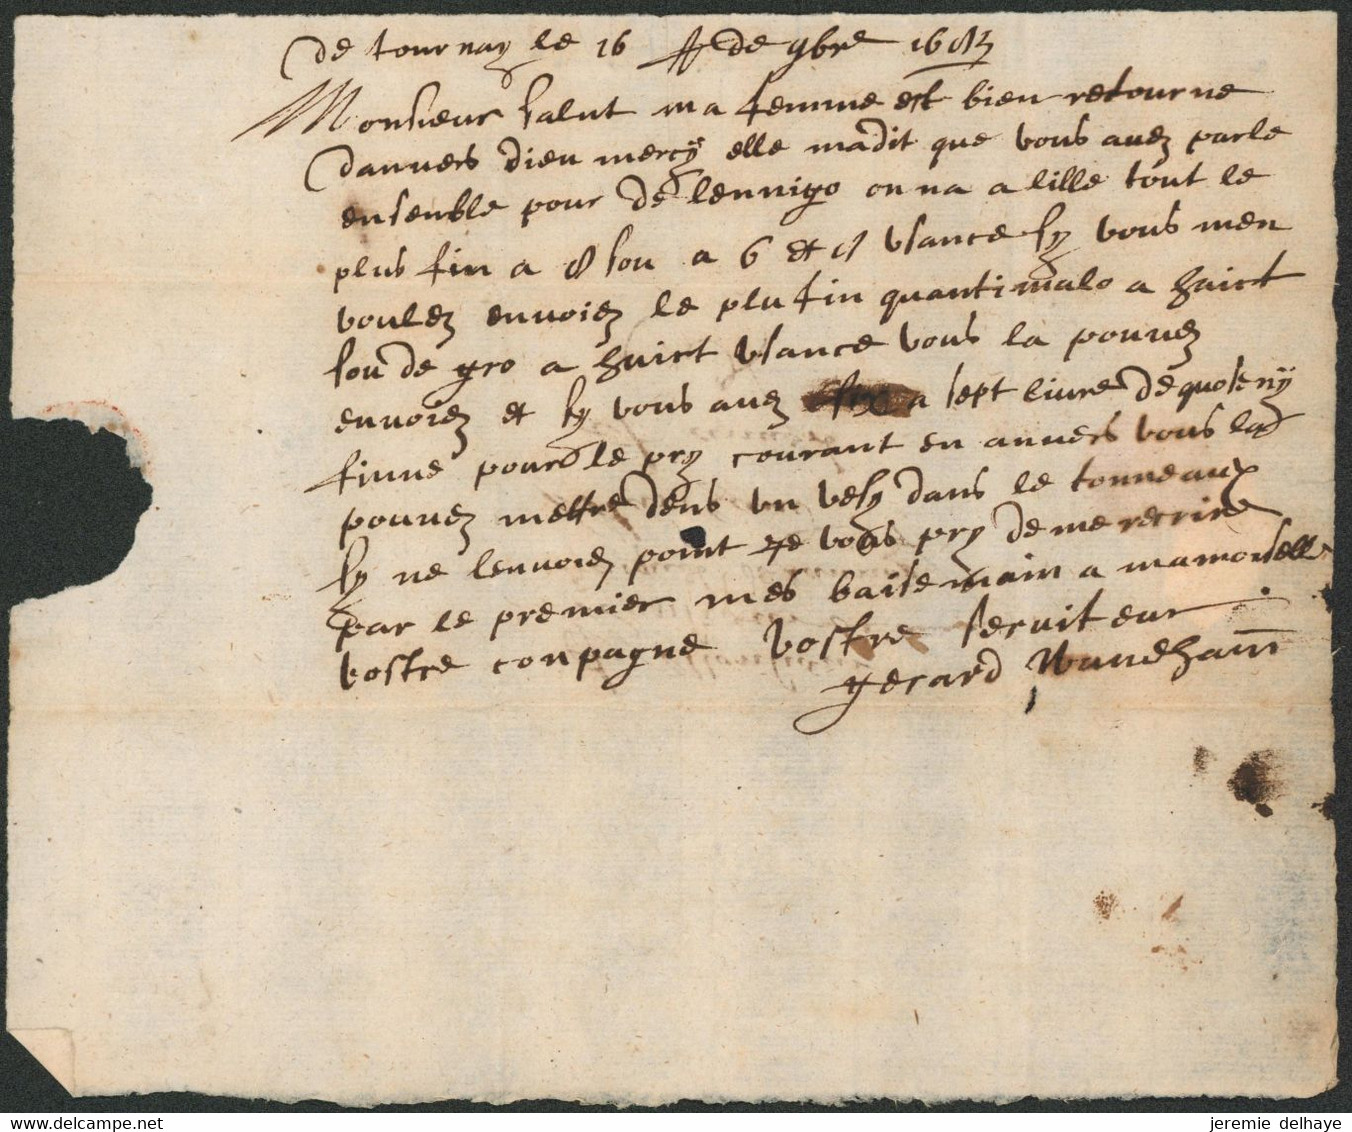 de tournay le 16 de 9bre 16
Monsieur salut ma femme est bien retourne
danvers dieu mercy elle madit que vous avez parle
ensenble pour de lennigo on na a lille tout le
plus fin a 8 sou a 6 et usance sy vous men
voulez envoiez le plu fin quantimalo a huict
sou de gro a huict usance vous la pouvez
envoiez et sy vous avez a sept livre de
finne pour le pry courant en anvers vous la
pouvez mettre dens un dans le tonneaux
sy ne lenvoiez point Je vous pry de me recrire
par le premier mes baisemain a mamoiselle
vostre conpagne vostre serviteur
gerard
jeremie delhaye
www.delcampe.net